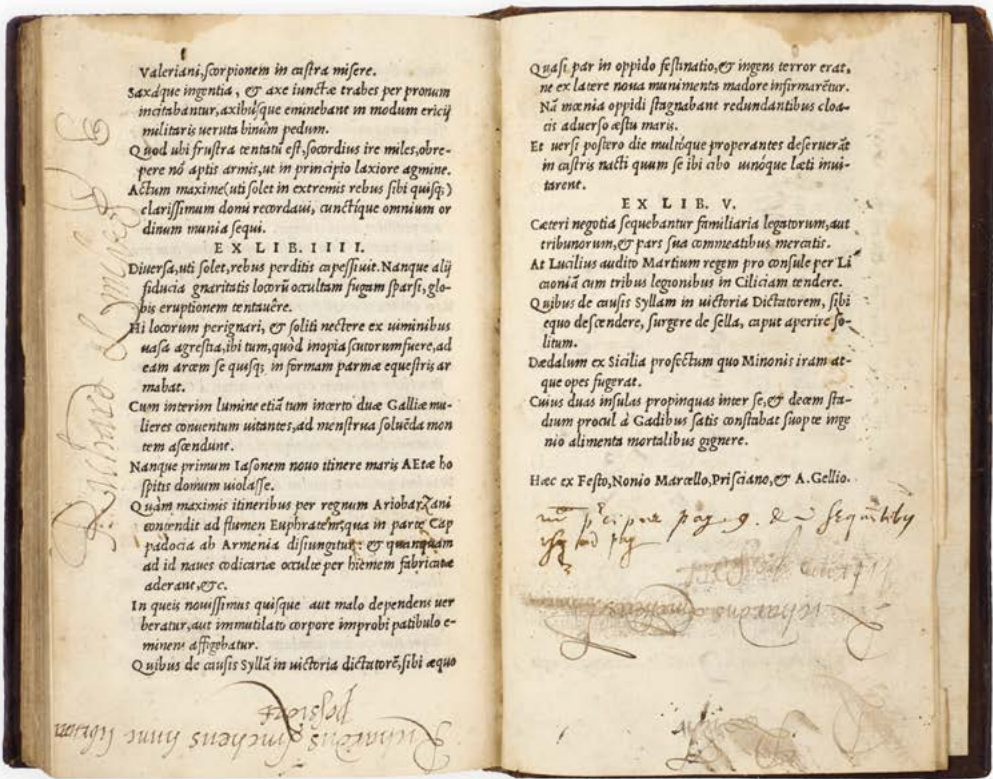 Valeriani,scorpionem in castra misere.
Saxáque ingentia, & axe iunctæ trabes per pronum
incitabantur,axibúsque eminebant in modum ericij
militaris ueruta binûm pedum.
Quod ubi frustra tentatũ est,socordius ire miles,obre-
pere nõ aptis armis,ut in principio laxiore agmine.
Actum maxime(uti solet in extremis rebus sibi quisq;)
clarissimum domi recordaui, cunctíque omnium or
dinum munia sequi.
EX LIB. IIII.
Diuersa,uti solet,rebus perditis capessiuit. Nanque alij
fiducia gnaritatis locorũ occultam fugam sparsi, glo-
bis eruptionem tentauêre.
Hi locorum perignari, & soliti nectere ex uiminibus
uasa agrestia,ibi tum,quòd inopia scutorum fuere,ad
eam arcem se quisq; in formam parmæ equestris ar
mabat.
Cum interim lumine etiã tum incerto duæ Galliæ mu-
lieres conuentum uitantes,ad menstrua soluẽda mon
tem ascendunt.
Nanque primum Iasonem nouo itinere maris AEtæ ho
spitis domum uiolasse.
Quàm maximis itineribus per regnum Ariobarzani
contendit ad flumen Euphratem,qua in parte Cap
padocia ab Armenia disiungitur: & quanquam
ad id naues codicariæ occulte per hiemem fabricatæ
aderant,&c.
In queis nouissimus quisque aut malo dependens uer
beratur,aut immutilato corpore improbi patibulo e-
minens affigebatur.
Quibus de causis Syllã in uictoria dictatorẽ,sibi æquo
Richard
Richardus hunc librum
possidet
Quasi par in oppido festinatio,& ingens terror erat,
ne ex latere noua munimenta madore infirmarẽtur.
Nã mœnia oppidi stagnabant redundantibus cloa-
cis aduerso æstu maris.
Et uersi postero die multóque properantes deseruerãt
in castris nacti quum se ibi cibo uinóque læti inui-
tarent.
EX LIB. V.
Cæteri negotia sequebantur familiaria legatorum,aut
tribunorum,& pars sua commeatibus mercatis.
At Lucilius audito Martium regem pro consule per Li
caoniã cum tribus legionibus in Ciliciam tendere.
Quibus de causis Syllam in uictoria Dictatorem, sibi
equo descendere, surgere de sella, caput aperire so-
litum.
Dædalum ex Sicilia profectum quo Minonis iram at-
que opes fugerat.
Cuius duas insulas propinquas inter se,& decem sta-
dium procul à Gadibus satis constabat suopte inge
nio alimenta mortalibus gignere.
Hæc ex Festo,Nonio Marcello,Prisciano,& A.Gellio.